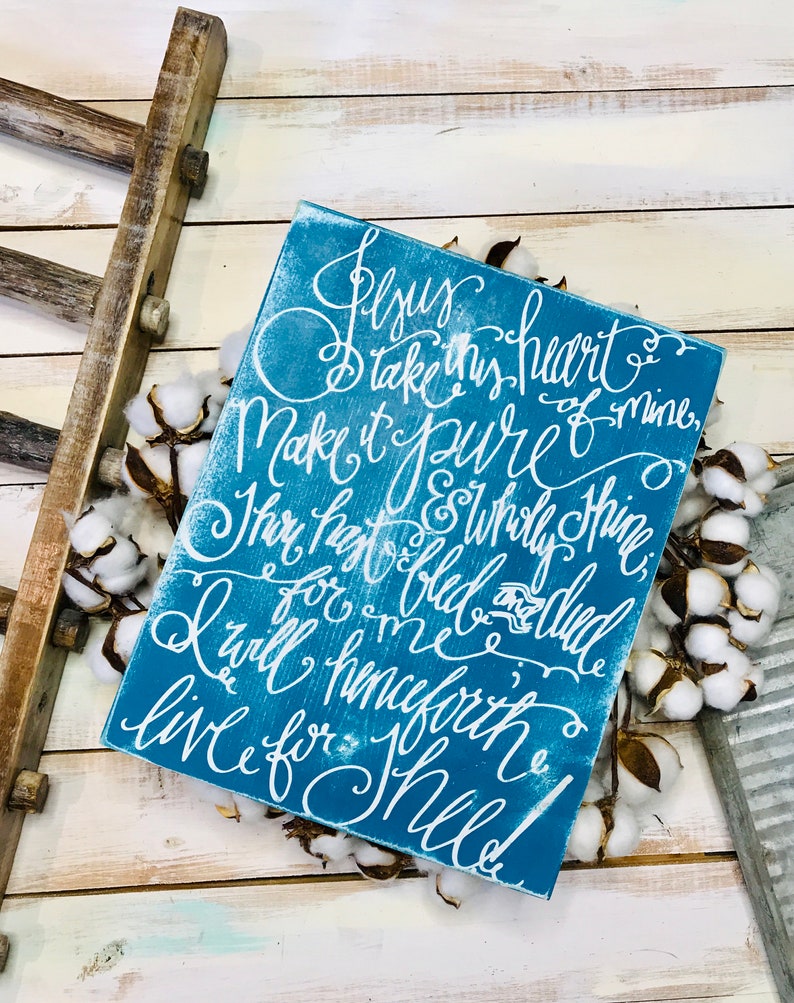 Jesus, take this heart
of mine,
Make it pure
& Wholly thine;
Thou hast bled and died
for me;
I will henceforth
live for Thee!